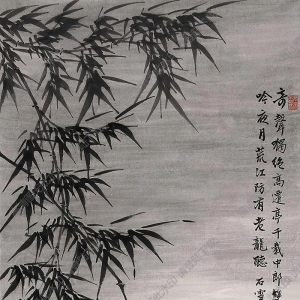 奇聲獨絶高遷亭千載中郎雙
吟夜月荒江防有老龍聽石雪